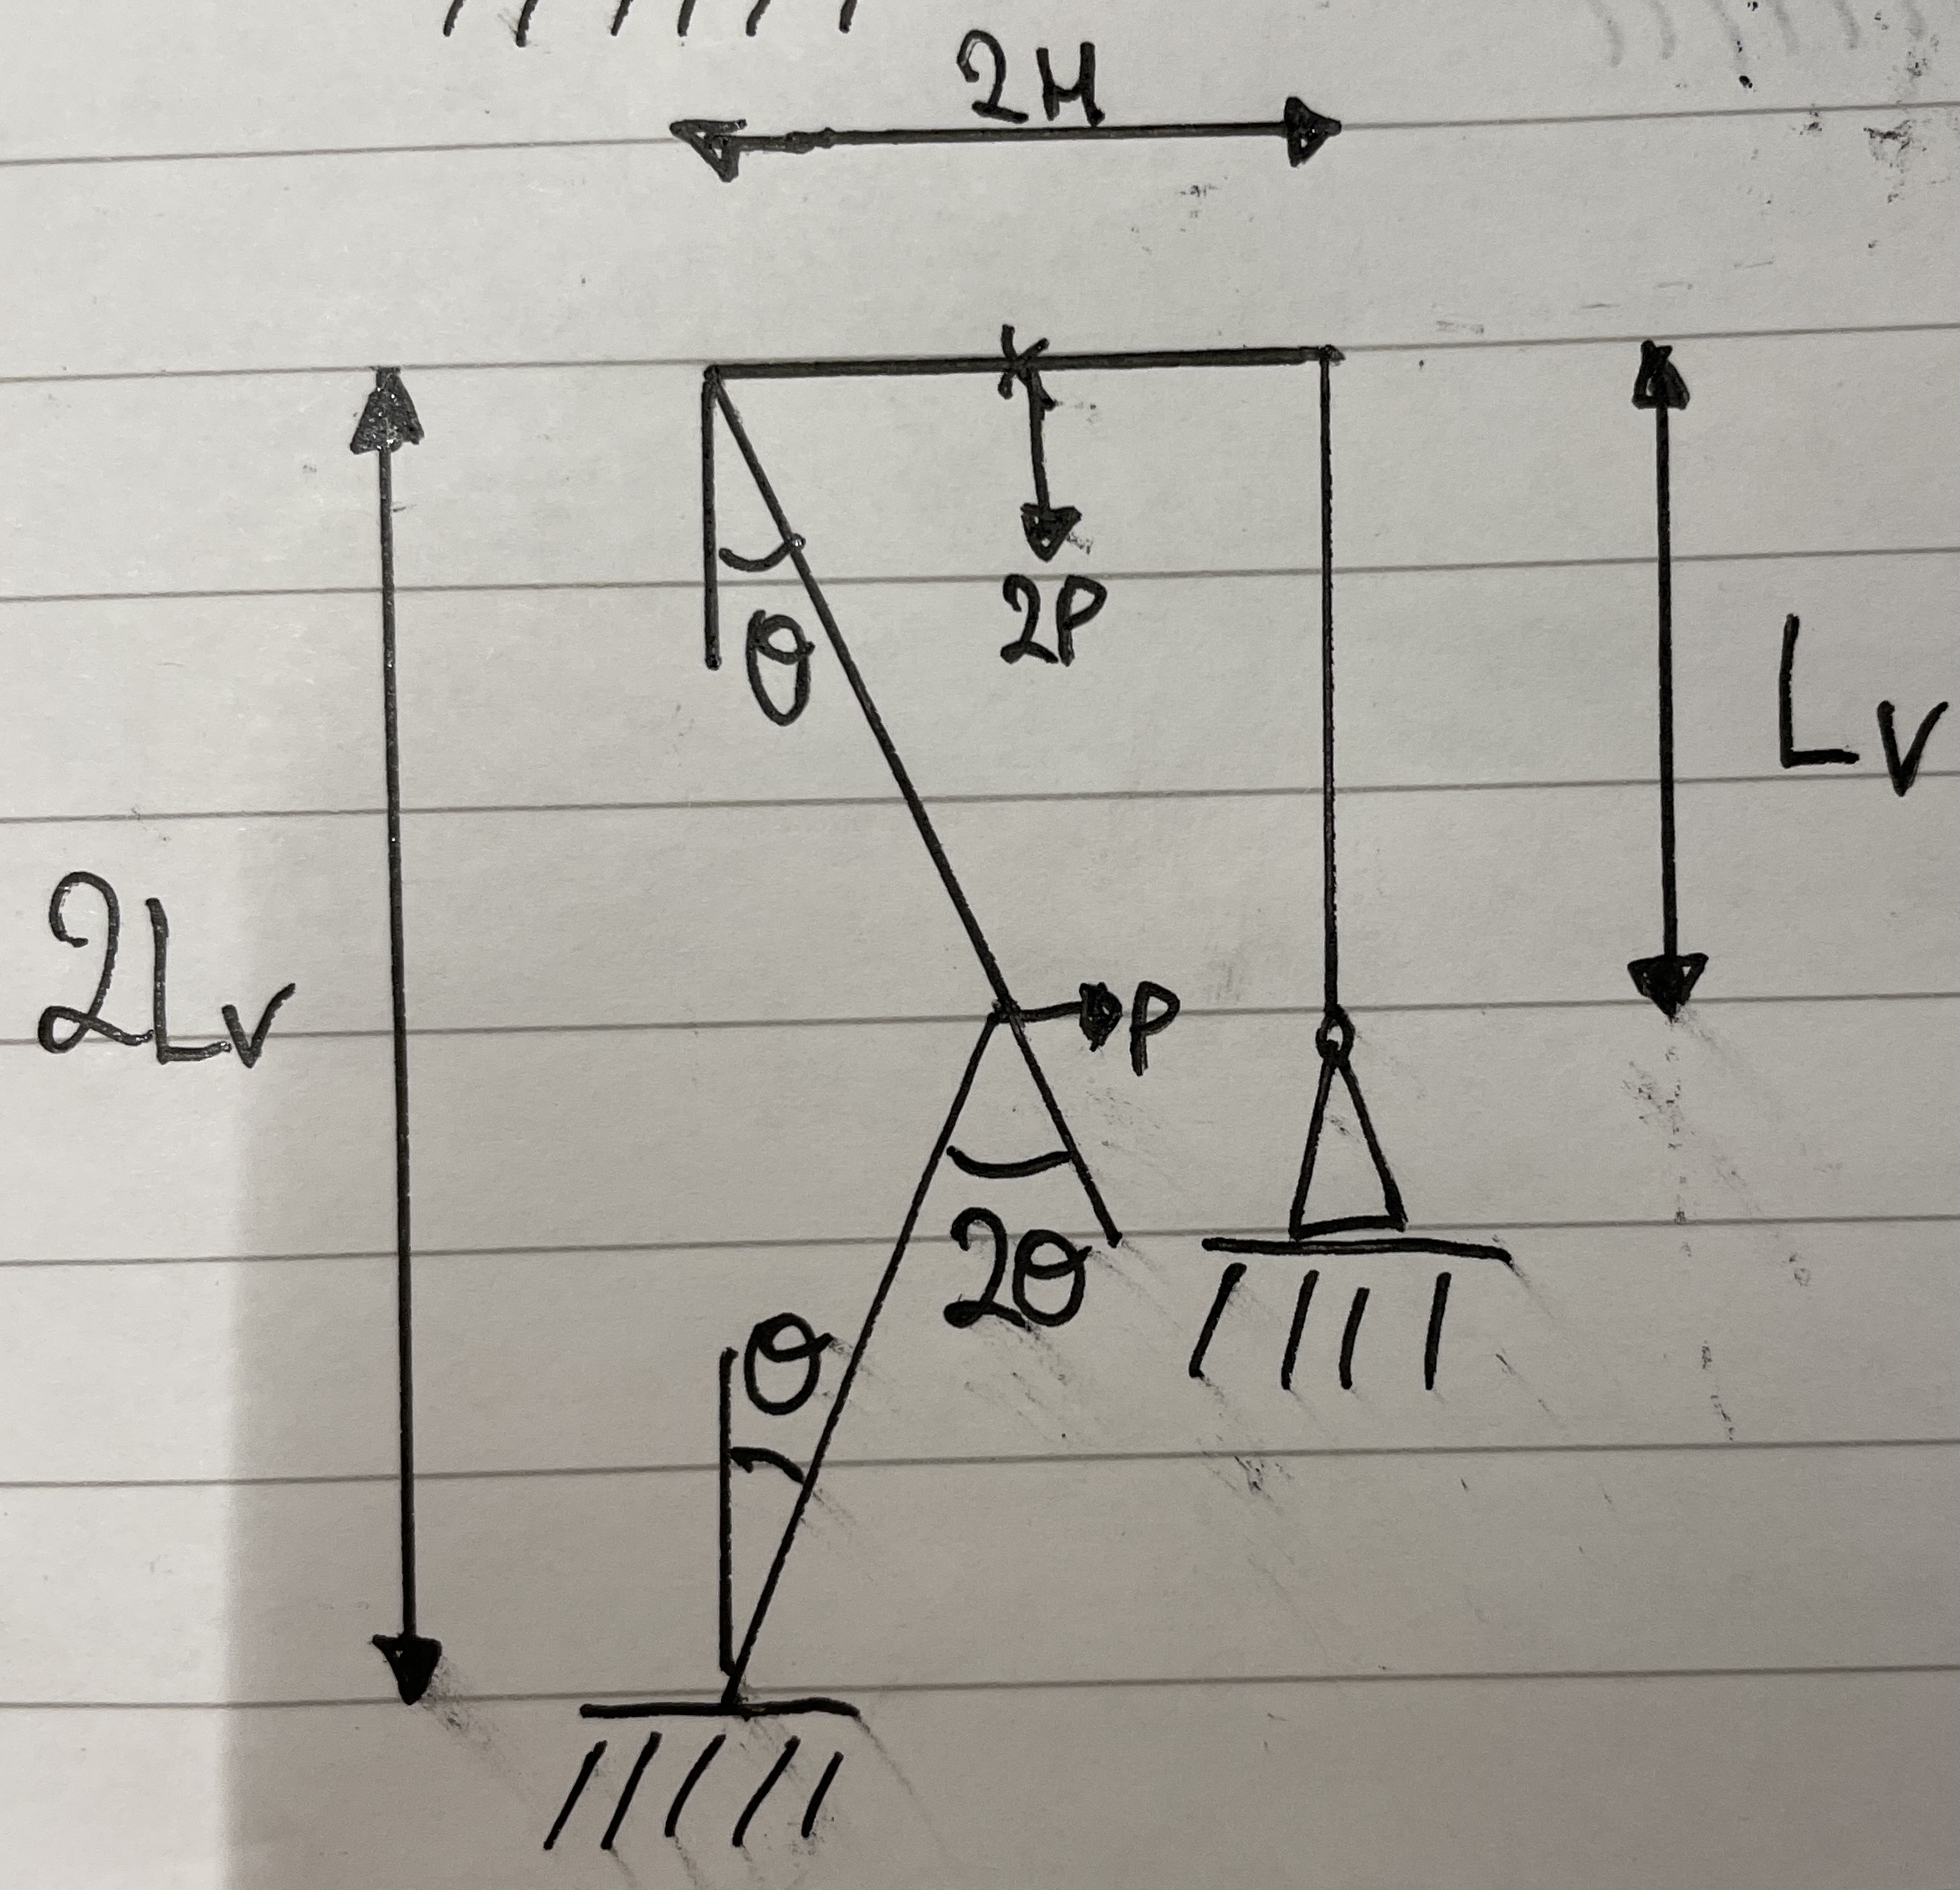 2H
2P
θ
Lv
2Lv
P
2θ
θ